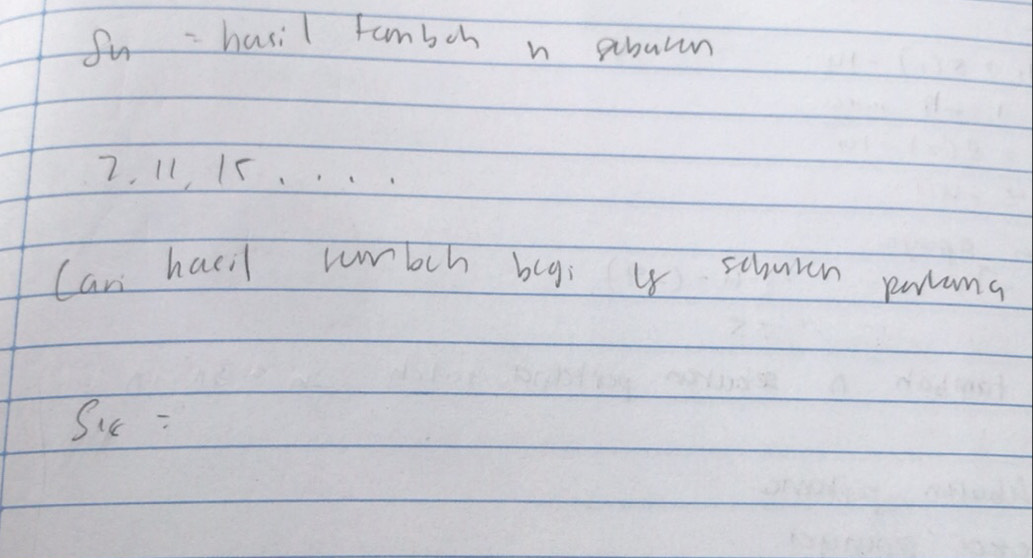 Sn = hasil tambah n sebutan
7, 11, 15 . . . .
Cari hasil tambah bagi 15 sebutan pertama
S15 =